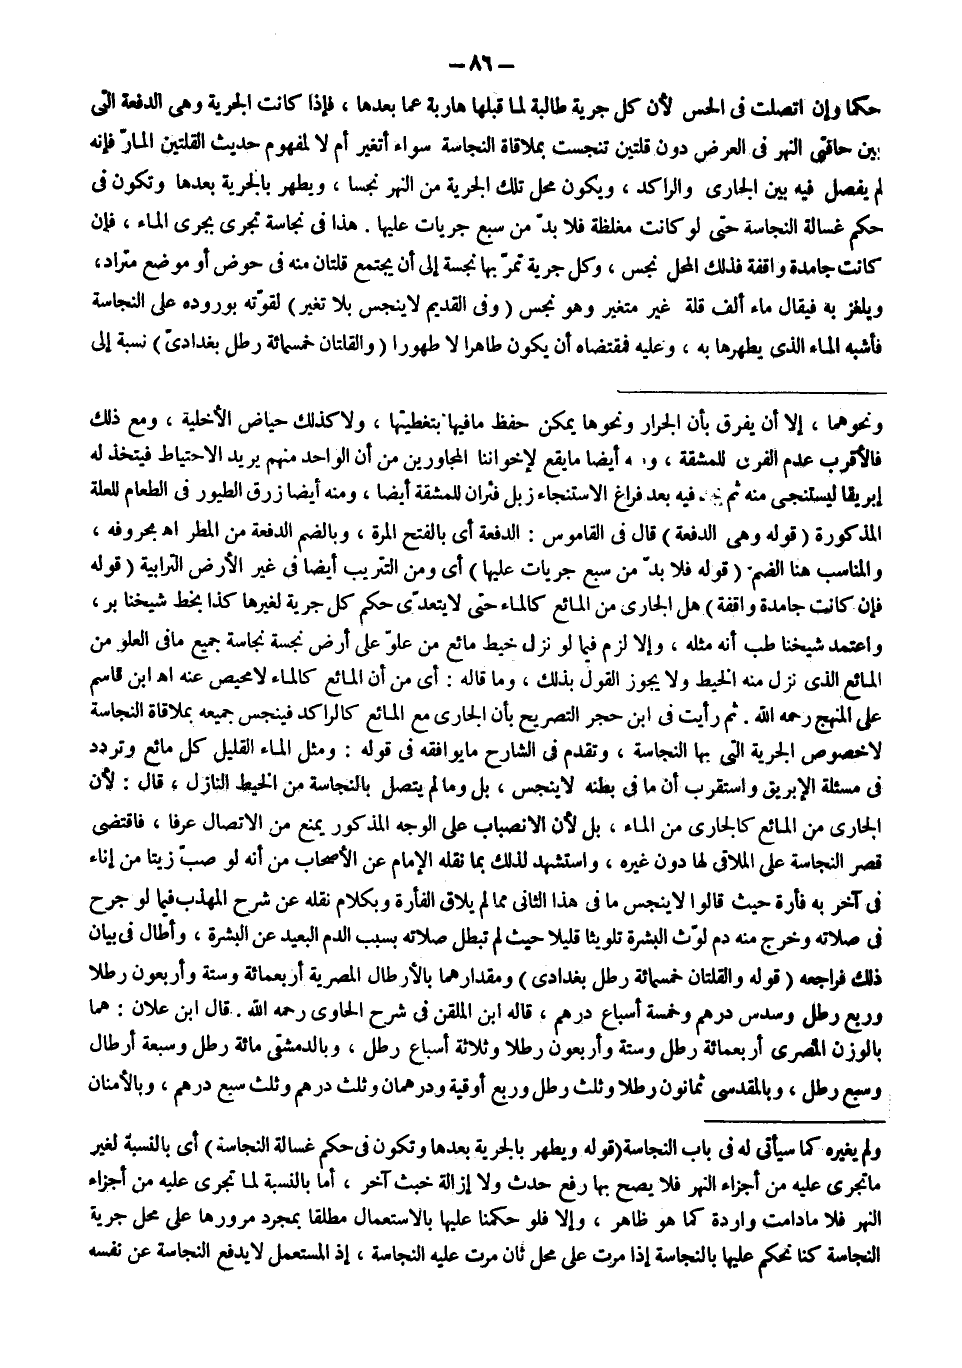 — ٨٦ —
حكما وإن اتصلت فى الحس لأن كل جرية طالبة لما قبلها هاربة عما بعدها ، فإذا كانت الجرية وهى الدفعة التى
بين حافتى النهر فى العرض دون قلتين تنجست بملاقاة النجاسة سواء أتغير أم لا لمفهوم حديث القلتين المارّ فإنه
لم يفصل فيه بين الجارى والراكد ، ويكون محل تلك الجرية من النهر نجسا ، ويطهر بالجرية بعدها وتكون فى
حكم غسالة النجاسة حتى لو كانت مغلظة فلا بدّ من سبع جريات عليها . هذا فى نجاسة تجرى بجرى الماء ، فإن
كانت جامدة واقفة فذلك المحل نجس ، وكل جرية تمرّ بها نجسة إلى أن يجتمع قلتان منه فى حوض أو موضع متراد،
ويلغز به فيقال ماء ألف قلة غير متغير وهو نجس ( وفى القديم لاينجس بلا تغير ) لقوّته بوروده على النجاسة
فأشبه الماء الذى يطهرها به ، وعليه فمقتضاه أن يكون طاهرا لا طهورا ( والقلتان خمسمائة رطل بغدادىّ ) نسبة إلى
ونحوهما ، إلا أن يفرق بأن الجرار ونحوها يمكن حفظ مافيها بتغطيتها ، ولا كذلك حياض الأخلية ، ومع ذلك
فالأقرب عدم الفرق للمشقة ، أيضا مايقع لإخواننا المجاورين من أن الواحد منهم يريد الاحتياط فيتخذ له
إبريقا ليستنجى منه ثم فيه بعد فراغ الاستنجاء زبل فئران للمشقة أيضا ، ومنه أيضا زرق الطيور فى الطعام للعلة
المذكورة ( قوله وهى الدفعة ) قال فى القاموس : الدفعة أى بالفتح المرة ، وبالضم الدفعة من المطر اه بحروفه ،
والمناسب هنا الضم ( قوله فلا بدّ من سبع جريات عليها ) أى ومن التتريب أيضا فى غير الأرض الترابية ( قوله
فإن كانت جامدة واقفة ) هل الجارى من المائع كالماء حتى لايتعدّى حكم كل جرية لغيرها كذا بخط شيخنا بر ،
واعتمد شيخنا طب أنه مثله ، وإلا لزم فيما لو نزل خيط مائع من علوّ على أرض نجسة نجاسة جميع مافى العلو من
المائع الذى نزل منه الخيط ولا يجوز القول بذلك ، وما قاله : أى من أن المائع كالماء لامحيص عنه اه ابن قاسم
على المنهج رحمه الله . ثم رأيت فى ابن حجر التصريح بأن الجارى مع المائع كالراكد فينجس جميعه بملاقاة النجاسة
لاخصوص الجرية التى بها النجاسة ، وتقدم فى الشارح مايوافقه فى قوله : ومثل الماء القليل كل مائع وتردد
فى مسئلة الإبريق واستقرب أن ما فى بطنه لاينجس ، بل وما لم يتصل بالنجاسة من الخيط النازل ، قال : لأن
الجارى من المائع كالجارى من الماء ، بل لأن الانصباب على الوجه المذكور يمنع من الاتصال عرفا ، فاقتضى
قصر النجاسة على الملاقى لها دون غيره ، واستشهد لذلك بما نقله الإمام عن الأصحاب من أنه لو صبّ زيتا من إناء
فى آخر به فأرة حيث قالوا لاينجس ما فى هذا الثانى مما لم يلاق الفأرة وبكلام نقله عن شرح المهذب فيما لو جرح
فى صلاته وخرج منه دم لوّث البشرة تلويثا قليلا حيث لم تبطل صلاته بسبب الدم البعيد عن البشرة ، وأطال فى بيان
ذلك فراجعه ( قوله والقلتان خمسمائة رطل بغدادى ) ومقدارهما بالأرطال المصرية أربعمائة وستة وأربعون رطلا
وربع رطل وسدس درهم وخمسة أسباع درهم ، قاله ابن الملقن فى شرح الحاوى رحمه الله . قال ابن علان : هما
بالوزن المصرى أربعمائة رطل وستة وأربعون رطلا وثلاثة أسباع رطل ، وبالدمشقى مائة رطل وسبعة أرطال
وسبع رطل ، وبالمقدسى ثمانون رطلا وثلث رطل وربع أوقية ودرهمان وثلث درهم وثلث سبع درهم ، وبالأمنان
ولم يغيره كما سيأتى له فى باب النجاسة (قوله ويطهر بالجرية بعدها وتكون فى حكم غسالة النجاسة ) أى بالنسبة لغير
ماتجرى عليه من أجزاء النهر فلا يصح بها رفع حدث ولا إزالة خبث آخر ، أما بالنسبة لما تجرى عليه من أجزاء
النهر فلا مادامت واردة كما هو ظاهر ، وإلا فلو حكمنا عليها بالاستعمال مطلقا بمجرد مرورها على محل جرية
النجاسة كنا نحكم عليها بالنجاسة إذا مرت على محل ثان مرت عليه النجاسة ، إذ المستعمل لايدفع النجاسة عن نفسه